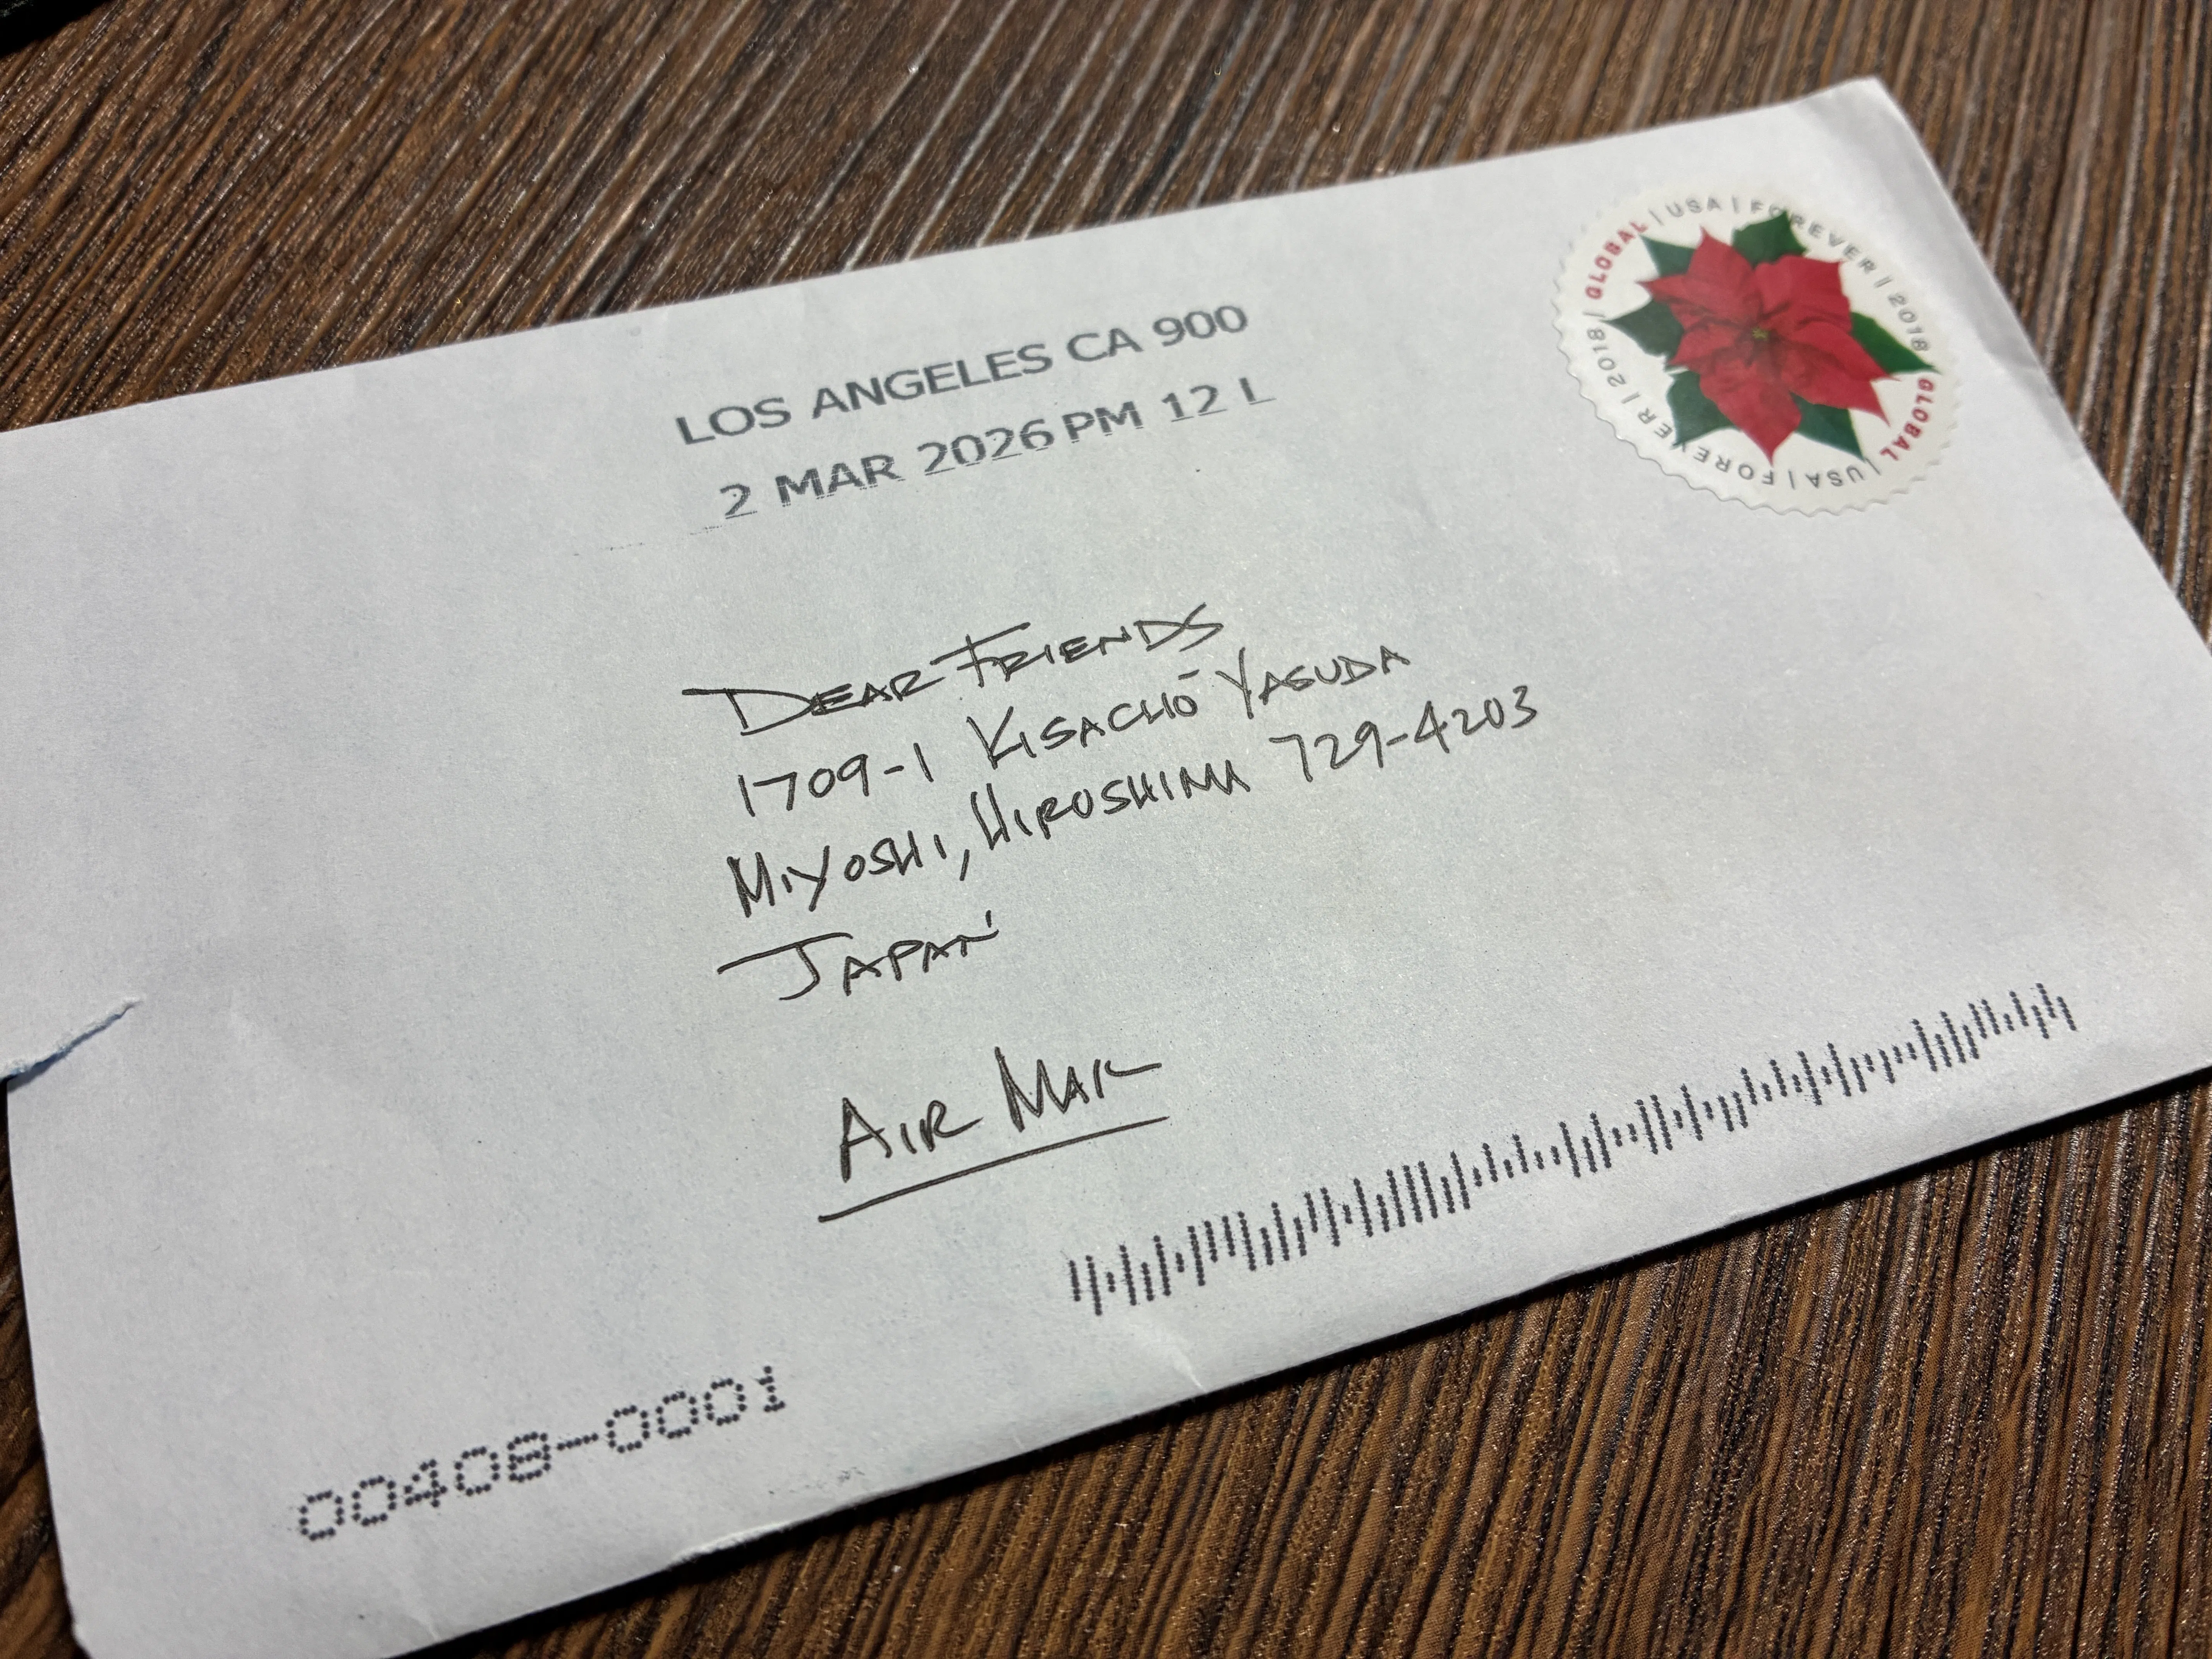 GLOBAL | USA | FOREVER | 2018 / GLOBAL | USA | FOREVER | 2018 /
LOS ANGELES CA 900
2 MAR 2026 PM 12 L
DEAR FRIENDS
1709-1 KISACHŌ YASUDA
MIYOSHI, HIROSHIMA 729-4203
JAPAN
AIR MAIL
00408-0001